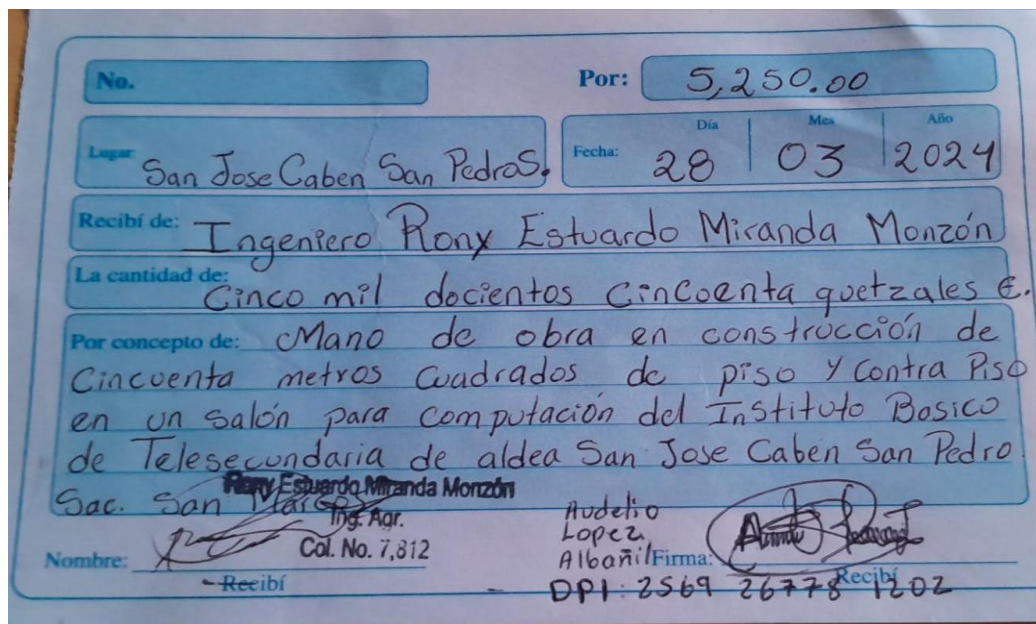 No.
Por: 5,250.00
Lugar: San Jose Caben San Pedro S.
Fecha: Día 28 Mes 03 Año 2024
Recibí de: Ingeniero Rony Estuardo Miranda Monzón
La cantidad de: Cinco mil docientos cincoenta quetzales E.
Por concepto de: Mano de obra en construcción de
Cincuenta metros Cuadrados de piso y Contra Piso
en un Salón para Computación del Instituto Basico
de Telesecundaria de aldea San Jose Caben San Pedro
Sac. San Marcos
Rony Estuardo Miranda Monzón
Ing. Agr.
Col. No. 7,812
Nombre:
Recibí
Audelio
Lopez
Albañil Firma:
Recibí
DPI: 2569 26778 1202